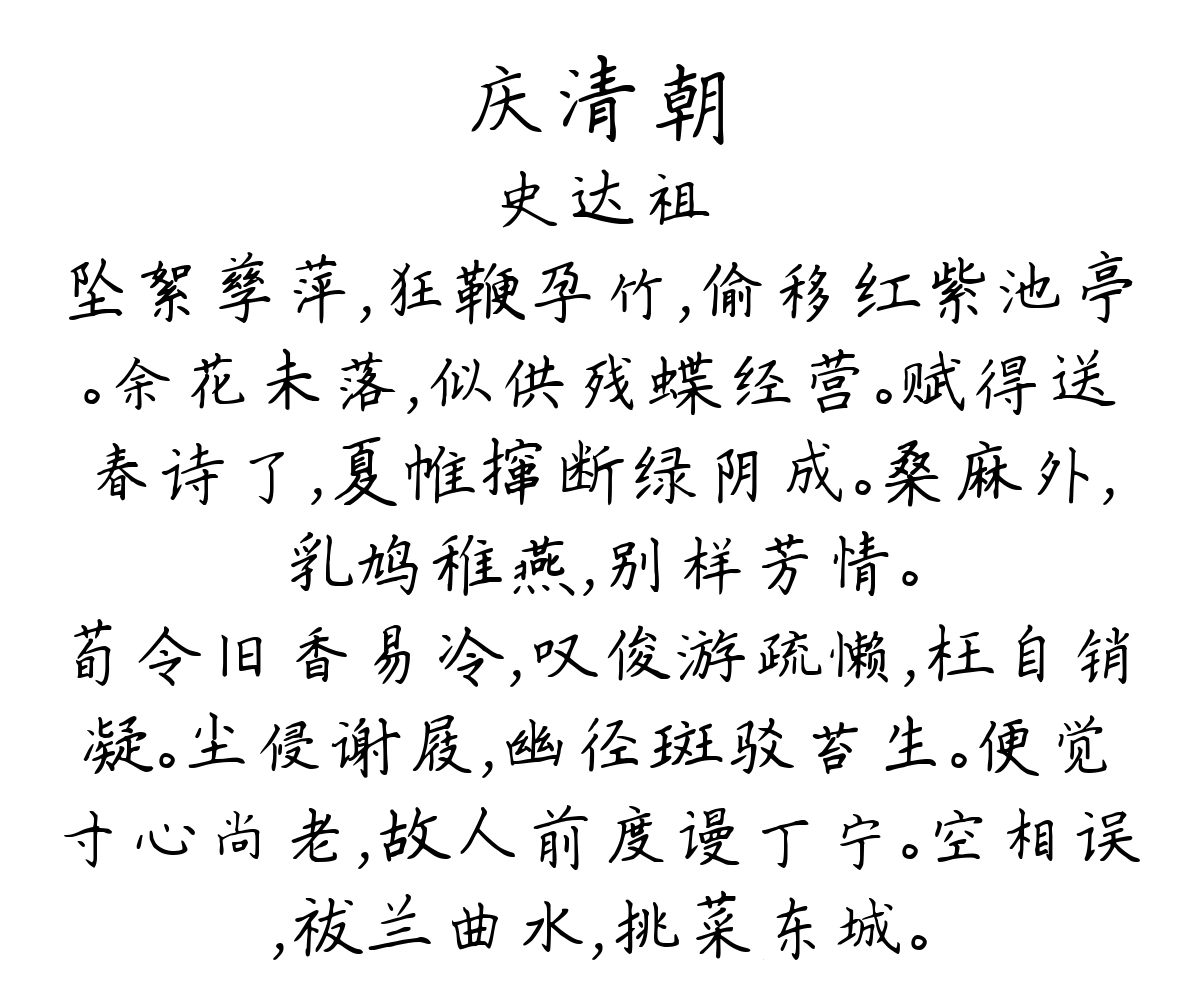 庆清朝
史达祖
坠絮孳萍,狂鞭孕竹,偷移红紫池亭
。余花未落,似供残蝶经营。赋得送
春诗了,夏帷撺断绿阴成。桑麻外,
乳鸠稚燕,别样芳情。
荀令旧香易冷,叹俊游疏懒,枉自销
凝。尘侵谢屐,幽径斑驳苔生。便觉
寸心尚老,故人前度谩丁宁。空相误
,祓兰曲水,挑菜东城。